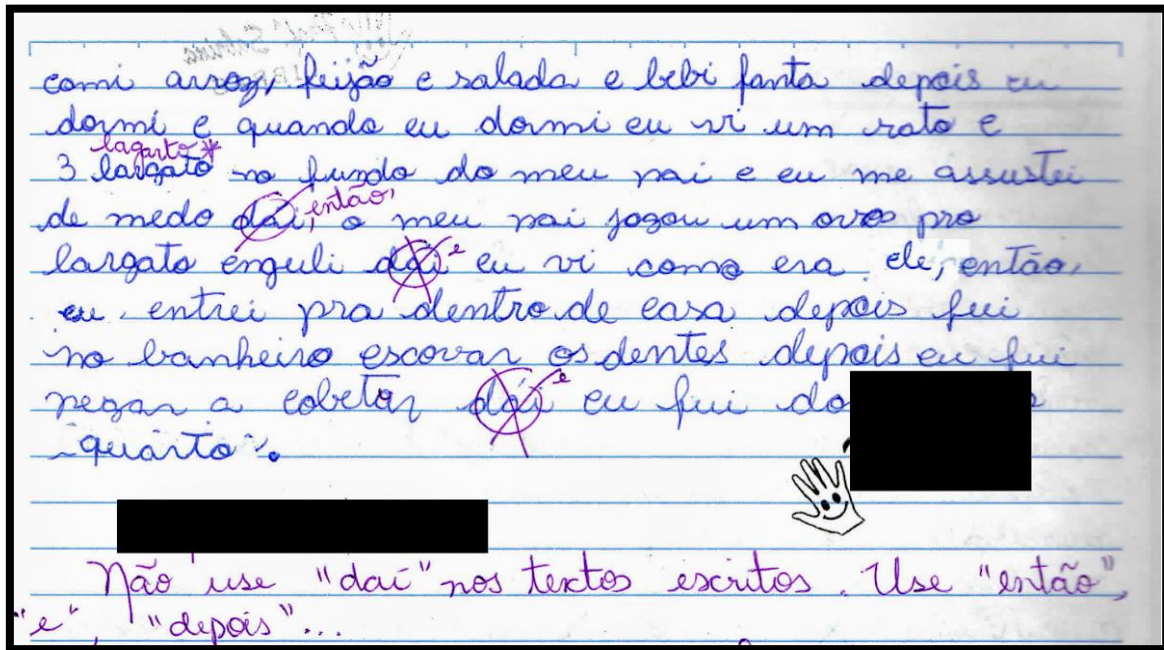 comi arroz, feijão e salada e bebi fanta depois eu
dormi e quando eu dormi eu vi um rato e
lagarto*
3 largato no fundo do meu pai e eu me assustei
de medo daí, então, o meu pai jogou um ovo pro
largato enguli daí e eu vi como era ele, então,
eu entrei pra dentro de casa depois fui
no banheiro escovar os dentes depois eu fui
pegar a cobetar daí e eu fui do
quarto.
Não use "daí" nos textos escritos. Use "então",
"e", "depois"...